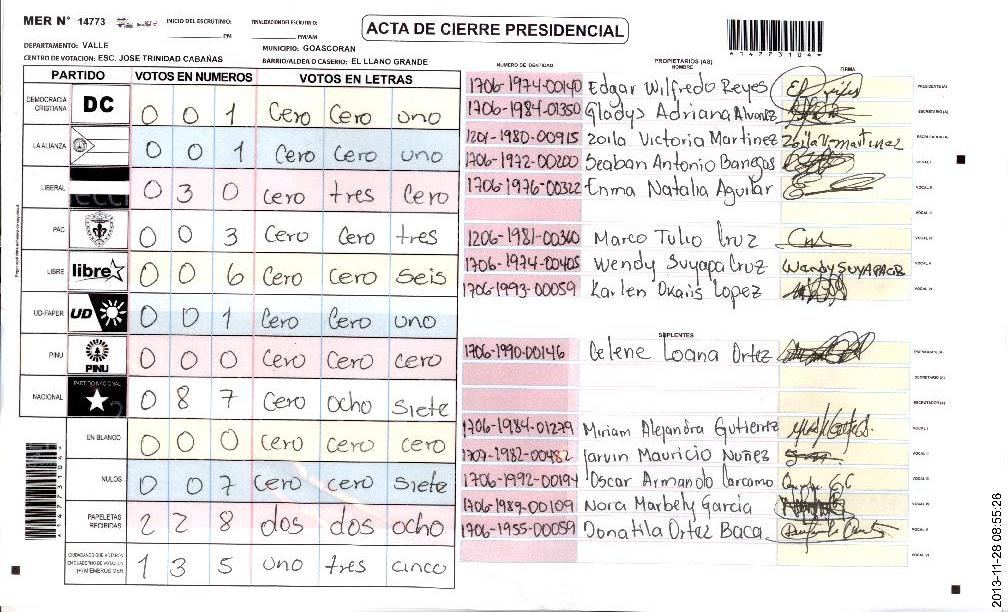 MER N° 14773 INICIO DEL ESCRUTINIO: PM FINALIZACION DEL ESCRUTINIO: PM/AM
ACTA DE CIERRE PRESIDENCIAL
*14773104*
DEPARTAMENTO: VALLE MUNICIPIO: GOASCORAN
CENTRO DE VOTACION: ESC. JOSE TRINIDAD CABAÑAS BARRIO/ALDEA O CASERIO: EL LLANO GRANDE
PARTIDO VOTOS EN NUMEROS VOTOS EN LETRAS
DEMOCRACIA CRISTIANA DC 0 0 1 Cero Cero uno
LA ALIANZA 0 0 1 Cero Cero uno
LIBERAL 0 3 0 Cero tres Cero
PAC 0 0 3 Cero Cero tres
LIBRE libre 0 0 6 Cero Cero seis
UD-FAPER UD 0 0 1 Cero Cero uno
PINU PINU 0 0 0 Cero Cero cero
NACIONAL PARTIDO NACIONAL 0 8 7 Cero ocho siete
EN BLANCO 0 0 0 cero cero cero
NULOS 0 0 7 cero cero siete
PAPELETAS RECIBIDAS 2 2 8 dos dos ocho
CIUDADANOS QUE VOTARON EN CUADERNO DE VOTACION (+) MIEMBROS MER 1 3 5 uno tres cinco
NUMERO DE IDENTIDAD PROPIETARIOS (AS) NOMBRE FIRMA
1706-1974-00140 Edgar Wilfredo Reyes PRESIDENTE (A)
1706-1984-01350 Gladys Adriana Alvarez SECRETARIO (A)
1201-1980-00915 Zoila Victoria Martinez Zoila V. martinez ESCRUTADOR (A)
1706-1972-00200 Seaban Antonio Banegas VOCAL I
1706-1976-00322 Enma Natalia Aguilar VOCAL II
VOCAL III
1206-1981-00360 Marco Tulio Cruz VOCAL IV
1706-1974-00405 Wendy Suyapa Cruz VOCAL V
1706-1993-00059 Karlen Okaris Lopez VOCAL VI
SUPLENTES
1706-1990-00146 Celene Loana Ortez PRESIDENTE (A)
SECRETARIO (A)
ESCRUTADOR (A)
1706-1984-01279 Miriam Alejandra Gutierrez VOCAL I
1709-1982-00482 Jarvin Mauricio Nuñez VOCAL II
1706-1992-00194 Oscar Armando Carcamo VOCAL III
1706-1989-00109 Nora Marbely Garcia VOCAL IV
1706-1955-00059 Donatila Ortez Baca VOCAL V
VOCAL VI
*14773104*
2013-11-28 08:55:26